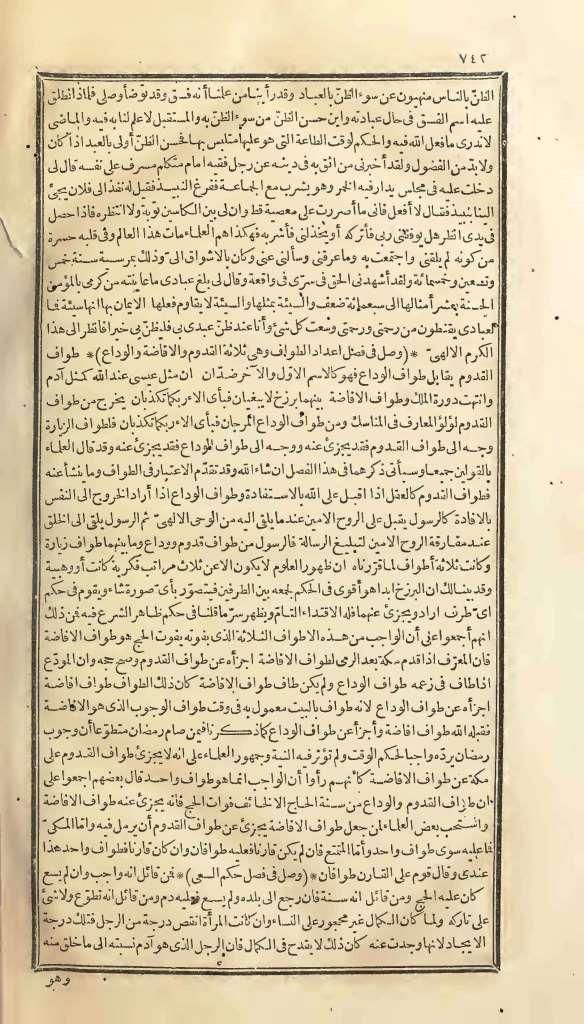 ٧٤٢
الظنّ بالناس منهيون عن سوء الظنّ بالعباد وقدرأينا من علمنا أنه فسق وقد توضأ وصلى فلماذا نطلق
عليه اسم الفسق فى حال عبادته وأين حسن الظنّ من سوء الظنّ به والمستقبل لا علم لنا به فيه والماضى
لا ندرى ما فعل الله فيه والحكم لوقت الطاعة التى هو عليها متلبس بها فحسن الظنّ أولى بالعبد اذا كان
ولا بدّ من الفضول ولقد أخبرنى من اثق به فى دينه عن رجل فقيه امام متكلم مسرف على نفسه قال لى
دخلت عليه فى مجلس يدار فيه الخمر وهو يشرب مع الجماعة ففرغ النبيذ فقيل له نفذ الى فلان يجئ
الينا بنبيذ فقال لا أفعل فانى ما أصررت على معصية قط وان لى بين الكاسين توبة ولا أنتظره فاذا حصل
فى يدى أنظر هل يوفقنى ربى فأتركه أو يخذلنى فأشربه فهكذا هم العلماء مات هذا العالم وفى قلبه حسرة
من كونه لم يلقنى واجتمعت به وما عرفنى وسألنى عنى وكان بالاشواق الىّ وذلك بمرسية سنة خمس
وتسعين وخمسمائة ولقد أشهدنى الحق فى سرّى فى واقعة وقال لى بلغ عبادى ما عاينته من كرمى بالمؤمن
الحسنة بعشر أمثالها الى سبعمائة ضعف والسيئة بمثلها والسيئة لا يقاوم فعلها الايمان بها انها سيئة فما
لعبادى يقنطون من رحمتى ورحمتى وسعت كل شئ وأنا عند ظنّ عبدى بى فليظنّ بى خيرا فانظر الى هذا
الكرم الالهىّ *(وصل فى فصل أعداد الطواف وهى ثلاثة القدوم والافاضة والوداع)* طواف
القدوم يقابل طواف الوداع فهو كالاسم الاوّل والآخر ضدّان ان مثل عيسى عند الله كمثل آدم
وانتهت دورة الملك وطواف الافاضة بينهما برزخ لا يبغيان فبأى آلاء ربكما تكذبان يخرج من طواف
القدوم لؤلؤ المعارف فى المناسك ومن طواف الوداع المرجان فبأى آلاء ربكما تكذبان فلطواف الزيارة
وجه الى طواف القدوم فقد يجزئ عنه ووجه الى طواف الوداع فقد يجزئ عنه وقد قال العلماء
بالقولين جميعا وسيأتى ذكرهما فى هذا الفصل ان شاء الله وقد تقدّم الاعتبار فى الطواف وما ينشأ عنه
فطواف القدوم كالعقل اذا أقبل على الله بالاستفادة وطواف الوداع اذا أراد الخروج الى النفس
بالافادة كالرسول يقبل على الروح الامين عندما يلقى اليه من الوحى الالهىّ ثم الرسول يلقى الى الخلق
عند مفارقة الروح الامين لتبليغ الرسالة فالرسول من طواف قدوم ووداع وما بينهما طواف زيارة
وكانت ثلاثة أطواف لما قررناه ان ظهور العلوم لا يكون الا عن ثلاث مراتب فكرية كانت أو وهبية
وقد بينا لك ان البرزخ أبدا هو أقوى فى الحكم لجمعه بين الطرفين فيتصوّر بأىّ صورة شاء ويقوم فى حكم
أىّ طرف أراد ويجزئ عنهما فله الاقتداء التامّ ويظهر سرّ ما قلنا فى حكم ظاهر الشرع فيه فمن ذلك
انهم أجمعوا على أن الواجب من هذه الاطواف الثلاثة الذى بفوته يفوت الحج هو طواف الافاضة
فان المعرّف اذا قدم مكة بعد الرمى لطواف الافاضة اجزأه عن طواف القدوم وصح حجه وان المودّع
اذا طاف فى زعمه طواف الوداع ولم يكن طاف طواف الافاضة كان ذلك الطواف طواف افاضة
اجزأه عن طواف الوداع لانه طواف بالبيت معمول به فى وقت طواف الوجوب الذى هو الافاضة
فقبله الله طواف افاضة وأجزأ عن طواف الوداع كما ذكرنا فيمن صام رمضان متطوّعا أن وجوب
رمضان يردّه واجبا لحكم الوقت ولم تؤثر فيه النية وجمهور العلماء على انه لا يجزئ طواف القدوم على
مكة عن طواف الافاضة كأنهم رأوا أن الواجب انما هو طواف واحد قال بعضهم أجمعوا على
ان طواف القدوم والوداع من سنة الحاج الا لخائف فوات الحج فانه يجزئ عنه طواف الافاضة
واستحب بعض العلماء لمن جعل طواف الافاضة يجزئ عن طواف القدوم أن يرمل فيه وامّا المكىّ
فما عليه سوى طواف واحد وأمّا المتمتع فان لم يكن قارنا فعليه طوافان وان كان قارنا فطواف واحد هذا
عندى وقال قوم على القارن طوافان *(وصل فى فصل حكم السعى)* فمن قائل انه واجب وان لم يسع
كان عليه الحج ومن قائل انه سنة فان رجع الى بلده ولم يسع فعليه دم ومن قائل انه تطوّع ولا شئ
على تاركه ولما كان الكمال غير محجور على النساء وان كانت المرأة أنقص درجة من الرجل فتلك درجة
الايجاد لانها وجدت عنه كان ذلك لا يقدح فى الكمال فان الرجل الذى هو آدم نسبته الى ما خلق منه
وهو